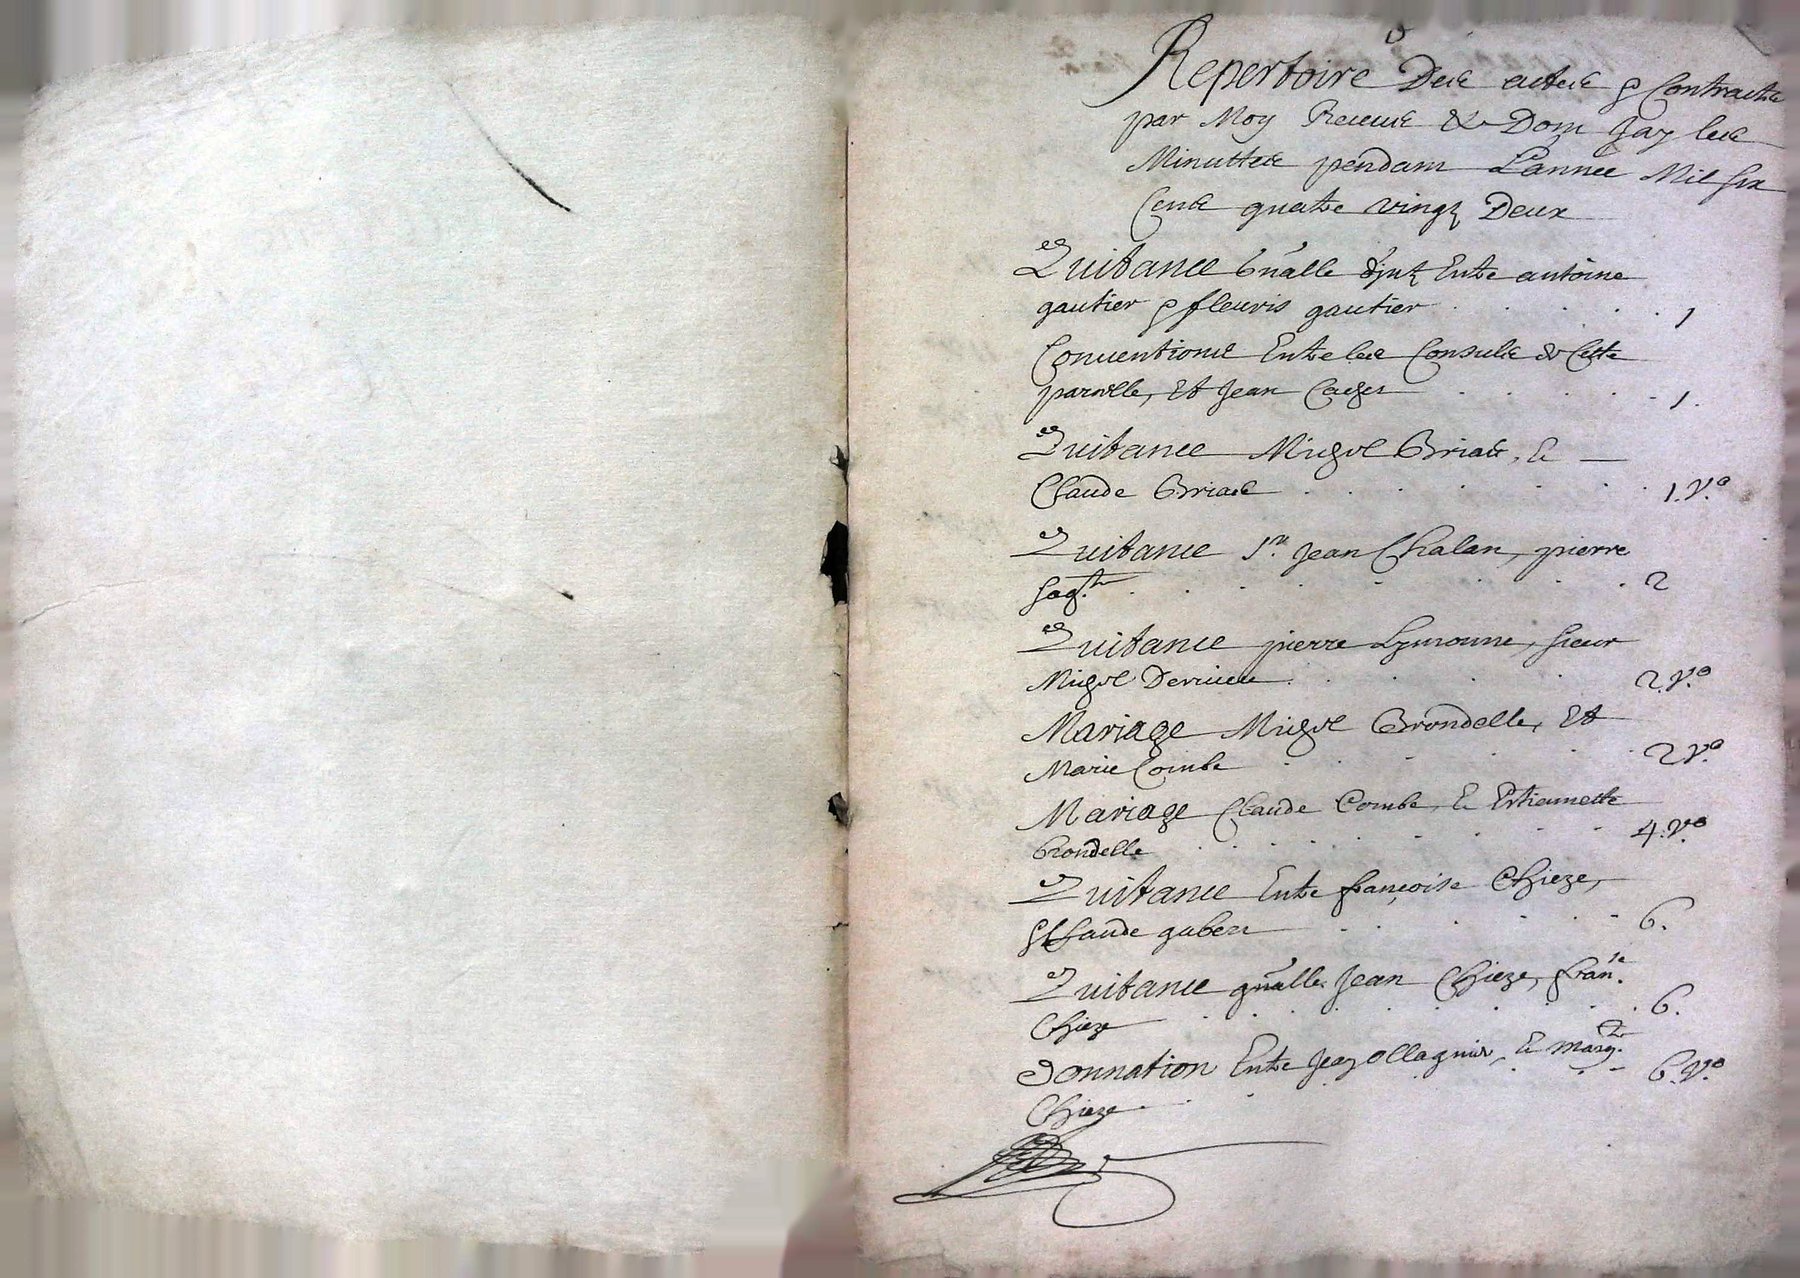 Repertoire Des actes & Contractz
par Moy Receus & Dont Jay les
Minuttes pendant L'annee Mil six
Centz quatre vingtz Deux
Quitance Entre antoine
gautier & fleuris gautier 1
Conventions Entre les Consulz de Cette
paroisse, Et Jean 1.
Quitance Michel Briat, &
Claude Briat 1. v.o
Quitance sr. Jean Chalan, pierre
2
Quitance pierre sieur
Michel Derieu 2. v.o
Mariage Michel Brondelle, Et
Marie Combe 2 v.o
Mariage Claude Combe, & Estiennette
Brondelle 4. v.o
Quitance Entre françoise Chieze,
& Claude 6.
Quitance gnalle Jean Chieze, fran.se
Chieze 6.
Donnation Entre Jean ollagnier, & marg.te
Chieze 6. v.o